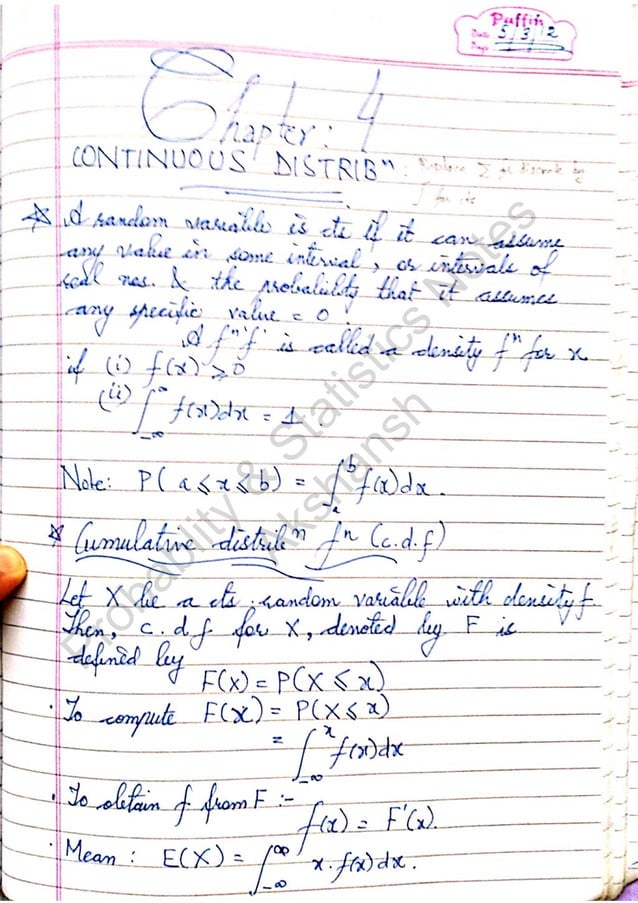 Puffin
Date 5/3/12
Page
Chapter: 4
CONTINUOUS DISTRIBⁿ: Replace Σ in discrete by
∫ for cts
A random variable is cts if it can assume
any value in some interval, or intervals of
real nos. & the probability that it assumes
any specific value = 0.
A fⁿ 'f' is called a density fⁿ for x
if (i) f(x) ⩾ 0
(ii) ∫_{-∞}^{∞} f(x)dx = 1.
Note: P(a ⩽ x ⩽ b) = ∫_a^b f(x)dx.
Cumulative distribⁿ fⁿ (c.d.f)
Let X be a cts. random variable with density f.
Then, c.d.f for X, denoted by F is
defined by
F(x) = P(X ⩽ x)
· To compute F(x) = P(X ⩽ x)
= ∫_{-∞}^x f(x)dx
· To obtain f from F :-
f(x) = F'(x).
· Mean : E(X) = ∫_{-∞}^{∞} x.f(x)dx.
Probability & Statistics Notes
Akshansh